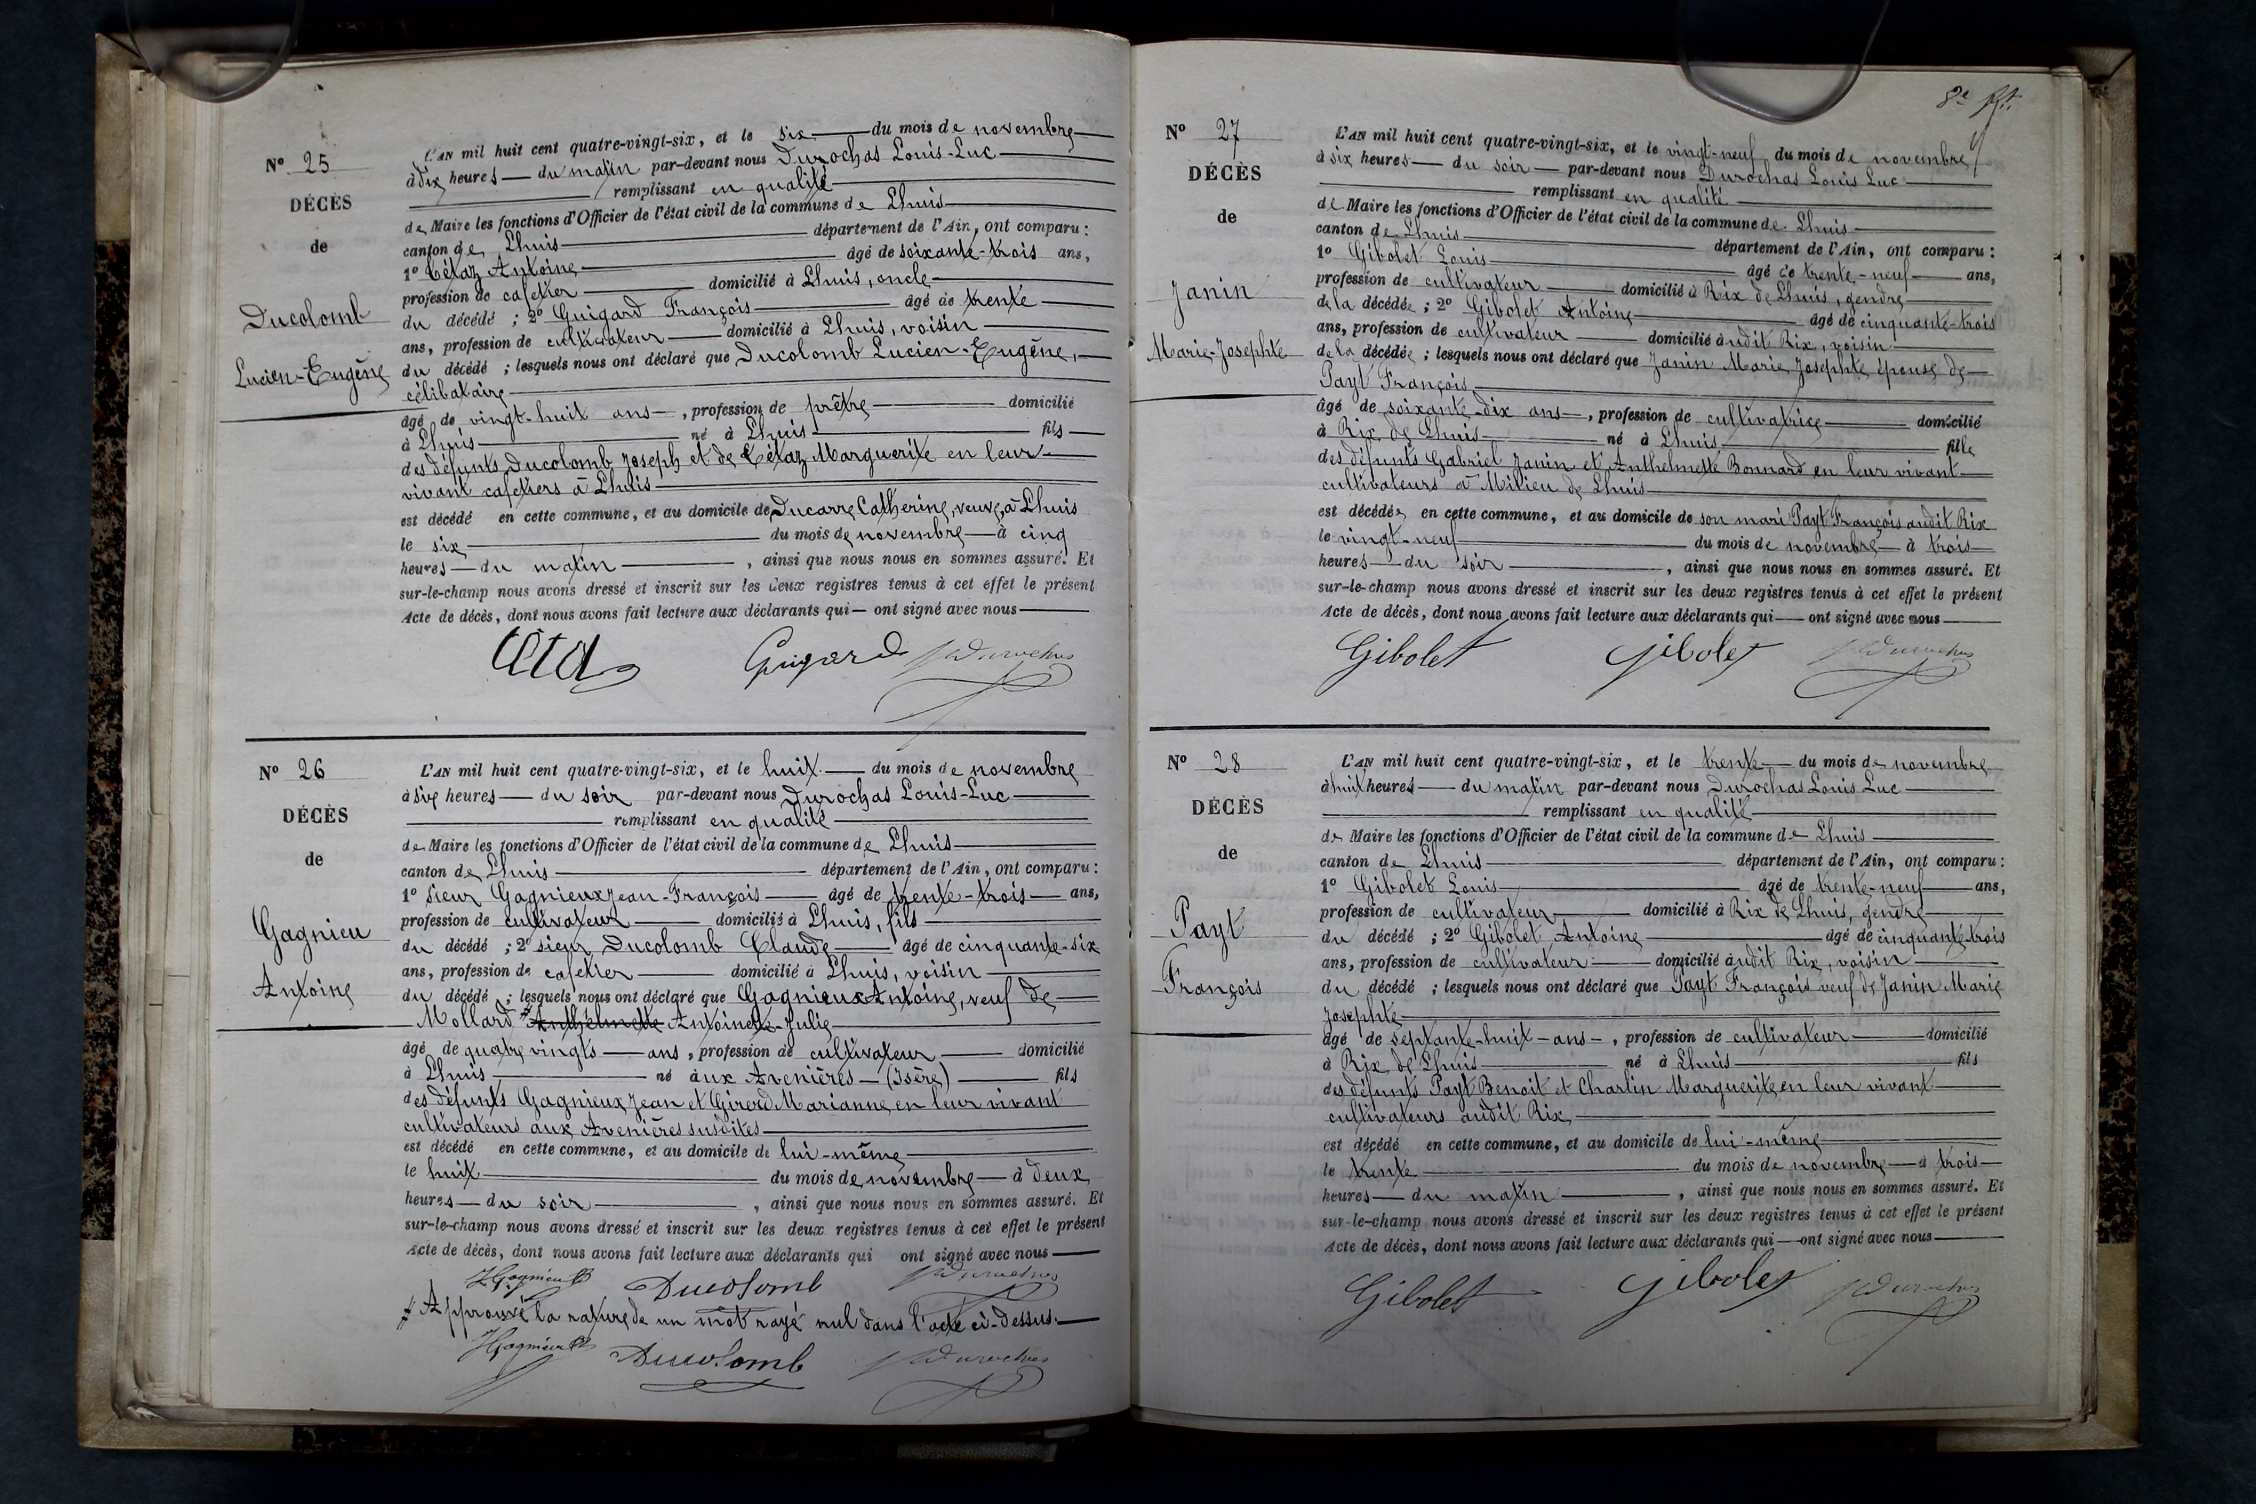 N° 25
DÉCÈS
de
Ducolomb
Lucien-Eugène
L'AN mil huit cent quatre-vingt-six, et le six du mois de novembre
à dix heures du matin par-devant nous Durochas Louis-Luc
remplissant en qualité
de Maire les fonctions d'Officier de l'état civil de la commune de Lhuis
canton de Lhuis département de l'Ain, ont comparu :
1° Cétaz Antoine âgé de soixante-trois ans,
profession de cafetier domicilié à Lhuis, oncle
du décédé ; 2° Guigard François âgé de trente
ans, profession de cultivateur domicilié à Lhuis, voisin
du décédé ; lesquels nous ont déclaré que Ducolomb Lucien-Eugène,
célibataire
âgé de vingt-huit ans, profession de prêtre domicilié
à Lhuis né à Lhuis fils
des défunts Ducolomb Joseph et de Cétaz Marguerite en leur
vivant cafetiers à Lhuis
est décédé en cette commune, et au domicile de Ducarre Catherine, veuve, à Lhuis
le six du mois de novembre à cinq
heures du matin, ainsi que nous nous en sommes assuré. Et
sur-le-champ nous avons dressé et inscrit sur les deux registres tenus à cet effet le présent
Acte de décès, dont nous avons fait lecture aux déclarants qui ont signé avec nous
Guigard Durochas
N° 26
DÉCÈS
de
Gagnieu
Antoine
L'AN mil huit cent quatre-vingt-six, et le huit du mois de novembre
à six heures du soir par-devant nous Durochas Louis-Luc
remplissant en qualité
de Maire les fonctions d'Officier de l'état civil de la commune de Lhuis
canton de Lhuis département de l'Ain, ont comparu :
1° sieur Gagnieux Jean-François âgé de trente-trois ans,
profession de cultivateur domicilié à Lhuis, fils
du décédé ; 2° sieur Ducolomb Claude âgé de cinquante-six
ans, profession de cafetier domicilié à Lhuis, voisin
du décédé ; lesquels nous ont déclaré que Gagnieux Antoine, veuf de
Mollard # Anthelmette Antoinette-Julie
âgé de quatre vingts ans, profession de cultivateur domicilié
à Lhuis né aux Avenières (Isère) fils
des défunts Gagnieux Jean et Girerd Marianne en leur vivant
cultivateurs aux Avenières suscites
est décédé en cette commune, et au domicile de lui-même
le huit du mois de novembre à deux
heures du soir, ainsi que nous nous en sommes assuré. Et
sur-le-champ nous avons dressé et inscrit sur les deux registres tenus à cet effet le présent
Acte de décès, dont nous avons fait lecture aux déclarants qui ont signé avec nous
JFGagnieux Ducolomb Durochas
# Approuvé la rature de un mot rayé nul dans l'acte ci-dessus.
JFGagnieux Ducolomb Durochas
8e
N° 27
DÉCÈS
de
Janin
Marie-Josephte
L'AN mil huit cent quatre-vingt-six, et le vingt-neuf du mois de novembre
à six heures du soir par-devant nous Durochas Louis Luc
remplissant en qualité
de Maire les fonctions d'Officier de l'état civil de la commune de Lhuis
canton de Lhuis département de l'Ain, ont comparu :
1° Gibolet Louis âgé de trente-neuf ans,
profession de cultivateur domicilié à Rix de Lhuis, gendre
de la décédée ; 2° Gibolet Antoine âgé de cinquante-trois
ans, profession de cultivateur domicilié audit Rix, voisin
de la décédée ; lesquels nous ont déclaré que Janin Marie Josephte épouse de
Payt François
âgé de soixante-dix ans, profession de cultivatrice domicilié
à Rix de Lhuis né à Lhuis fille
des défunts Gabriel Janin et Anthelmette Bonnard en leur vivant
cultivateurs à Milieu de Lhuis
est décédée en cette commune, et au domicile de son mari Payt François audit Rix
le vingt-neuf du mois de novembre à trois
heures du soir, ainsi que nous nous en sommes assuré. Et
sur-le-champ nous avons dressé et inscrit sur les deux registres tenus à cet effet le présent
Acte de décès, dont nous avons fait lecture aux déclarants qui ont signé avec nous
Gibolet Gibolet Durochas
N° 28
DÉCÈS
de
Payt
François
L'AN mil huit cent quatre-vingt-six, et le trente du mois de novembre
à huit heures du matin par-devant nous Durochas Louis Luc
remplissant en qualité
de Maire les fonctions d'Officier de l'état civil de la commune de Lhuis
canton de Lhuis département de l'Ain, ont comparu :
1° Gibolet Louis âgé de trente-neuf ans,
profession de cultivateur domicilié à Rix de Lhuis, gendre
du décédé ; 2° Gibolet Antoine âgé de cinquante-trois
ans, profession de cultivateur domicilié audit Rix, voisin
du décédé ; lesquels nous ont déclaré que Payt François veuf de Janin Marie
Josephte
âgé de septante-huit ans, profession de cultivateur domicilié
à Rix de Lhuis né à Lhuis fils
des défunts Payt Benoit et Charlin Marguerite en leur vivant
cultivateurs audit Rix
est décédé en cette commune, et au domicile de lui-même
le trente du mois de novembre à trois
heures du matin, ainsi que nous nous en sommes assuré. Et
sur-le-champ nous avons dressé et inscrit sur les deux registres tenus à cet effet le présent
Acte de décès, dont nous avons fait lecture aux déclarants qui ont signé avec nous
Gibolet Gibolet Durochas